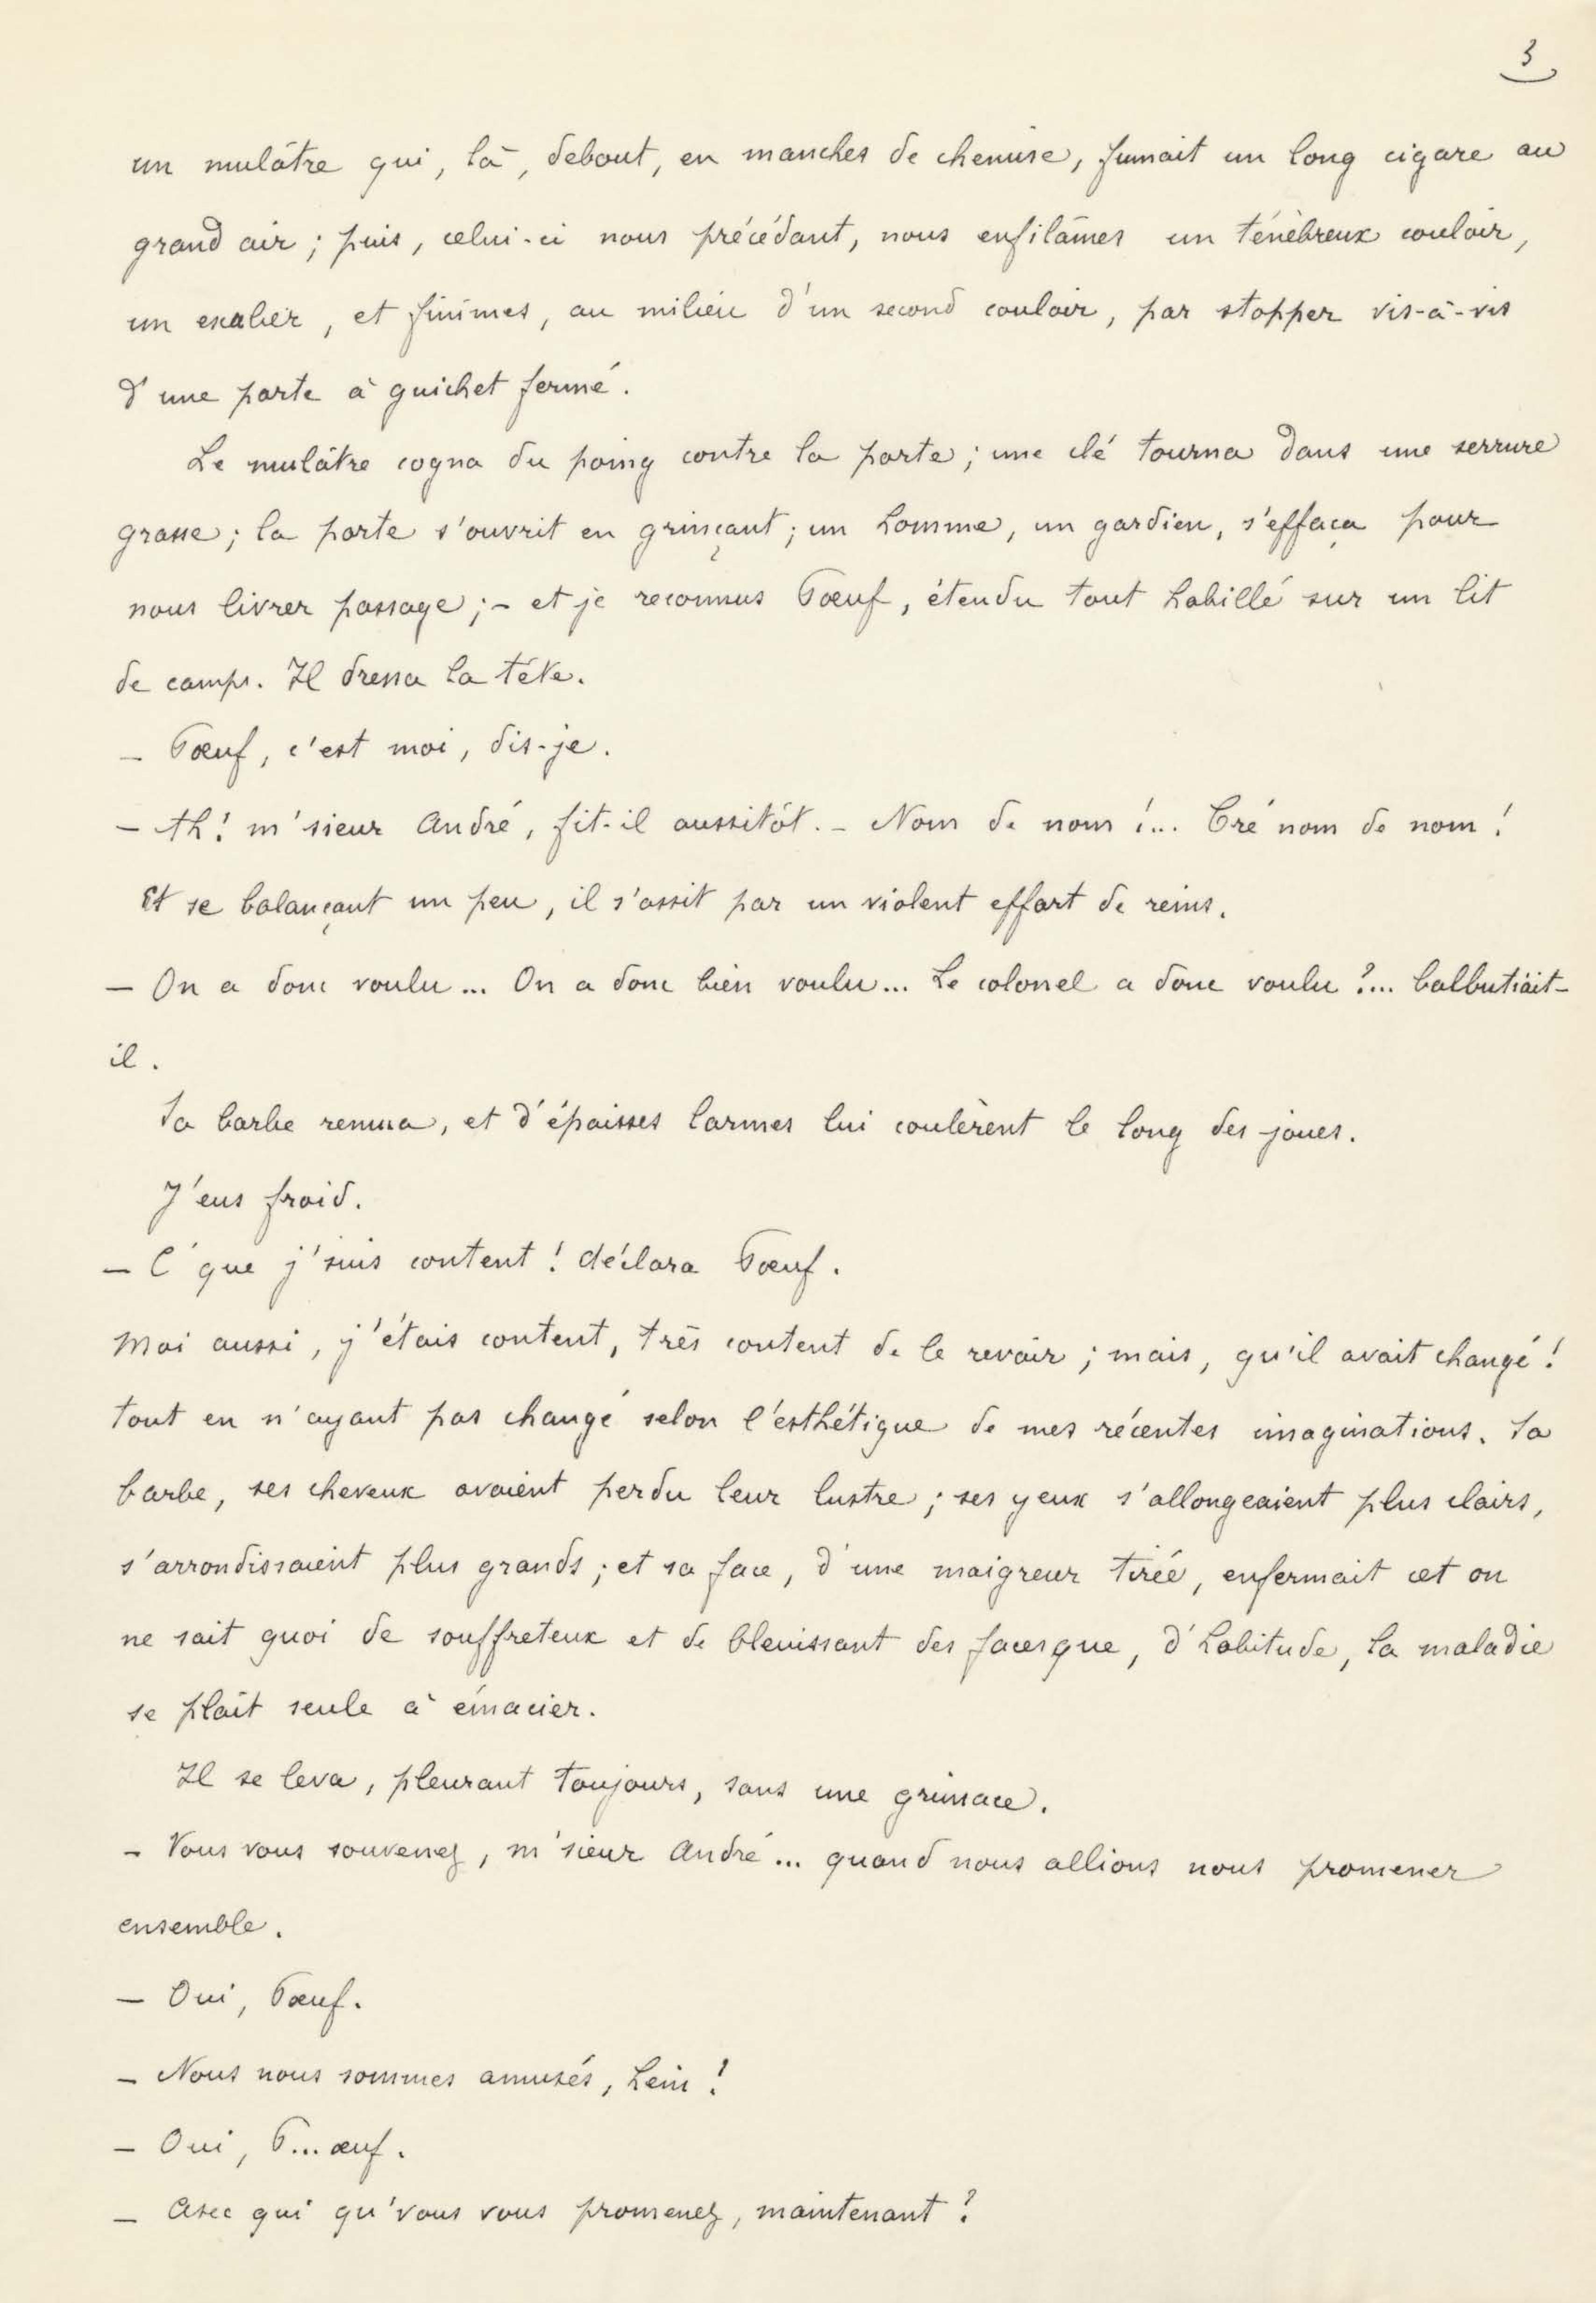 3
un mulâtre qui, là, debout, en manches de chemise, fumait un long cigare au
grand air ; puis, celui-ci nous précédant, nous enfilâmes un ténèbreux couloir,
un escalier, et finîmes, au milieu d'un second couloir, par stopper vis-à-vis
d'une porte à guichet fermé.
Le mulâtre cogna du poing contre la porte ; une clé tourna dans une serrure
grasse ; la porte s'ouvrit en grinçant ; un homme, un gardien, s'effaça pour
nous livrer passage ; - et je reconnus Tœuf, étendu tout habillé sur un lit
de camps. Il dressa la tête.
- Tœuf, c'est moi, dis-je.
- Ah ! m'sieur André, fit-il aussitôt. - Nom de nom !... Cré nom de nom !
Et se balançant un peu, il s'assit par un violent effort de reins.
- On a donc voulu... On a donc bien voulu... Le colonel a donc voulu ?... balbutiait-
il.
Sa barbe remua, et d'épaisses larmes lui coulèrent le long des joues.
J'eus froid.
- C'que j'suis content ! déclara Tœuf.
Moi aussi, j'étais content, très content de le revoir ; mais, qu'il avait changé !
tout en n'ayant pas changé selon l'esthétique de mes récentes imaginations. Sa
barbe, ses cheveux avaient perdu leur lustre ; ses yeux s'allongeaient plus clairs,
s'arrondissaient plus grands ; et sa face, d'une maigreur tirée, enfermait cet on
ne sait quoi de souffreteux et de bleuissant des faces que, d'habitude, la maladie
se plaît seule à émacier.
Il se leva, pleurant toujours, sans une grimace.
- Vous vous souvenez, m'sieur André... quand nous allions nous promener
ensemble.
- Oui, Tœuf.
- Nous nous sommes amusés, hein !
- Oui, T...œuf.
- Avec qui qu'vous vous promenez, maintenant ?